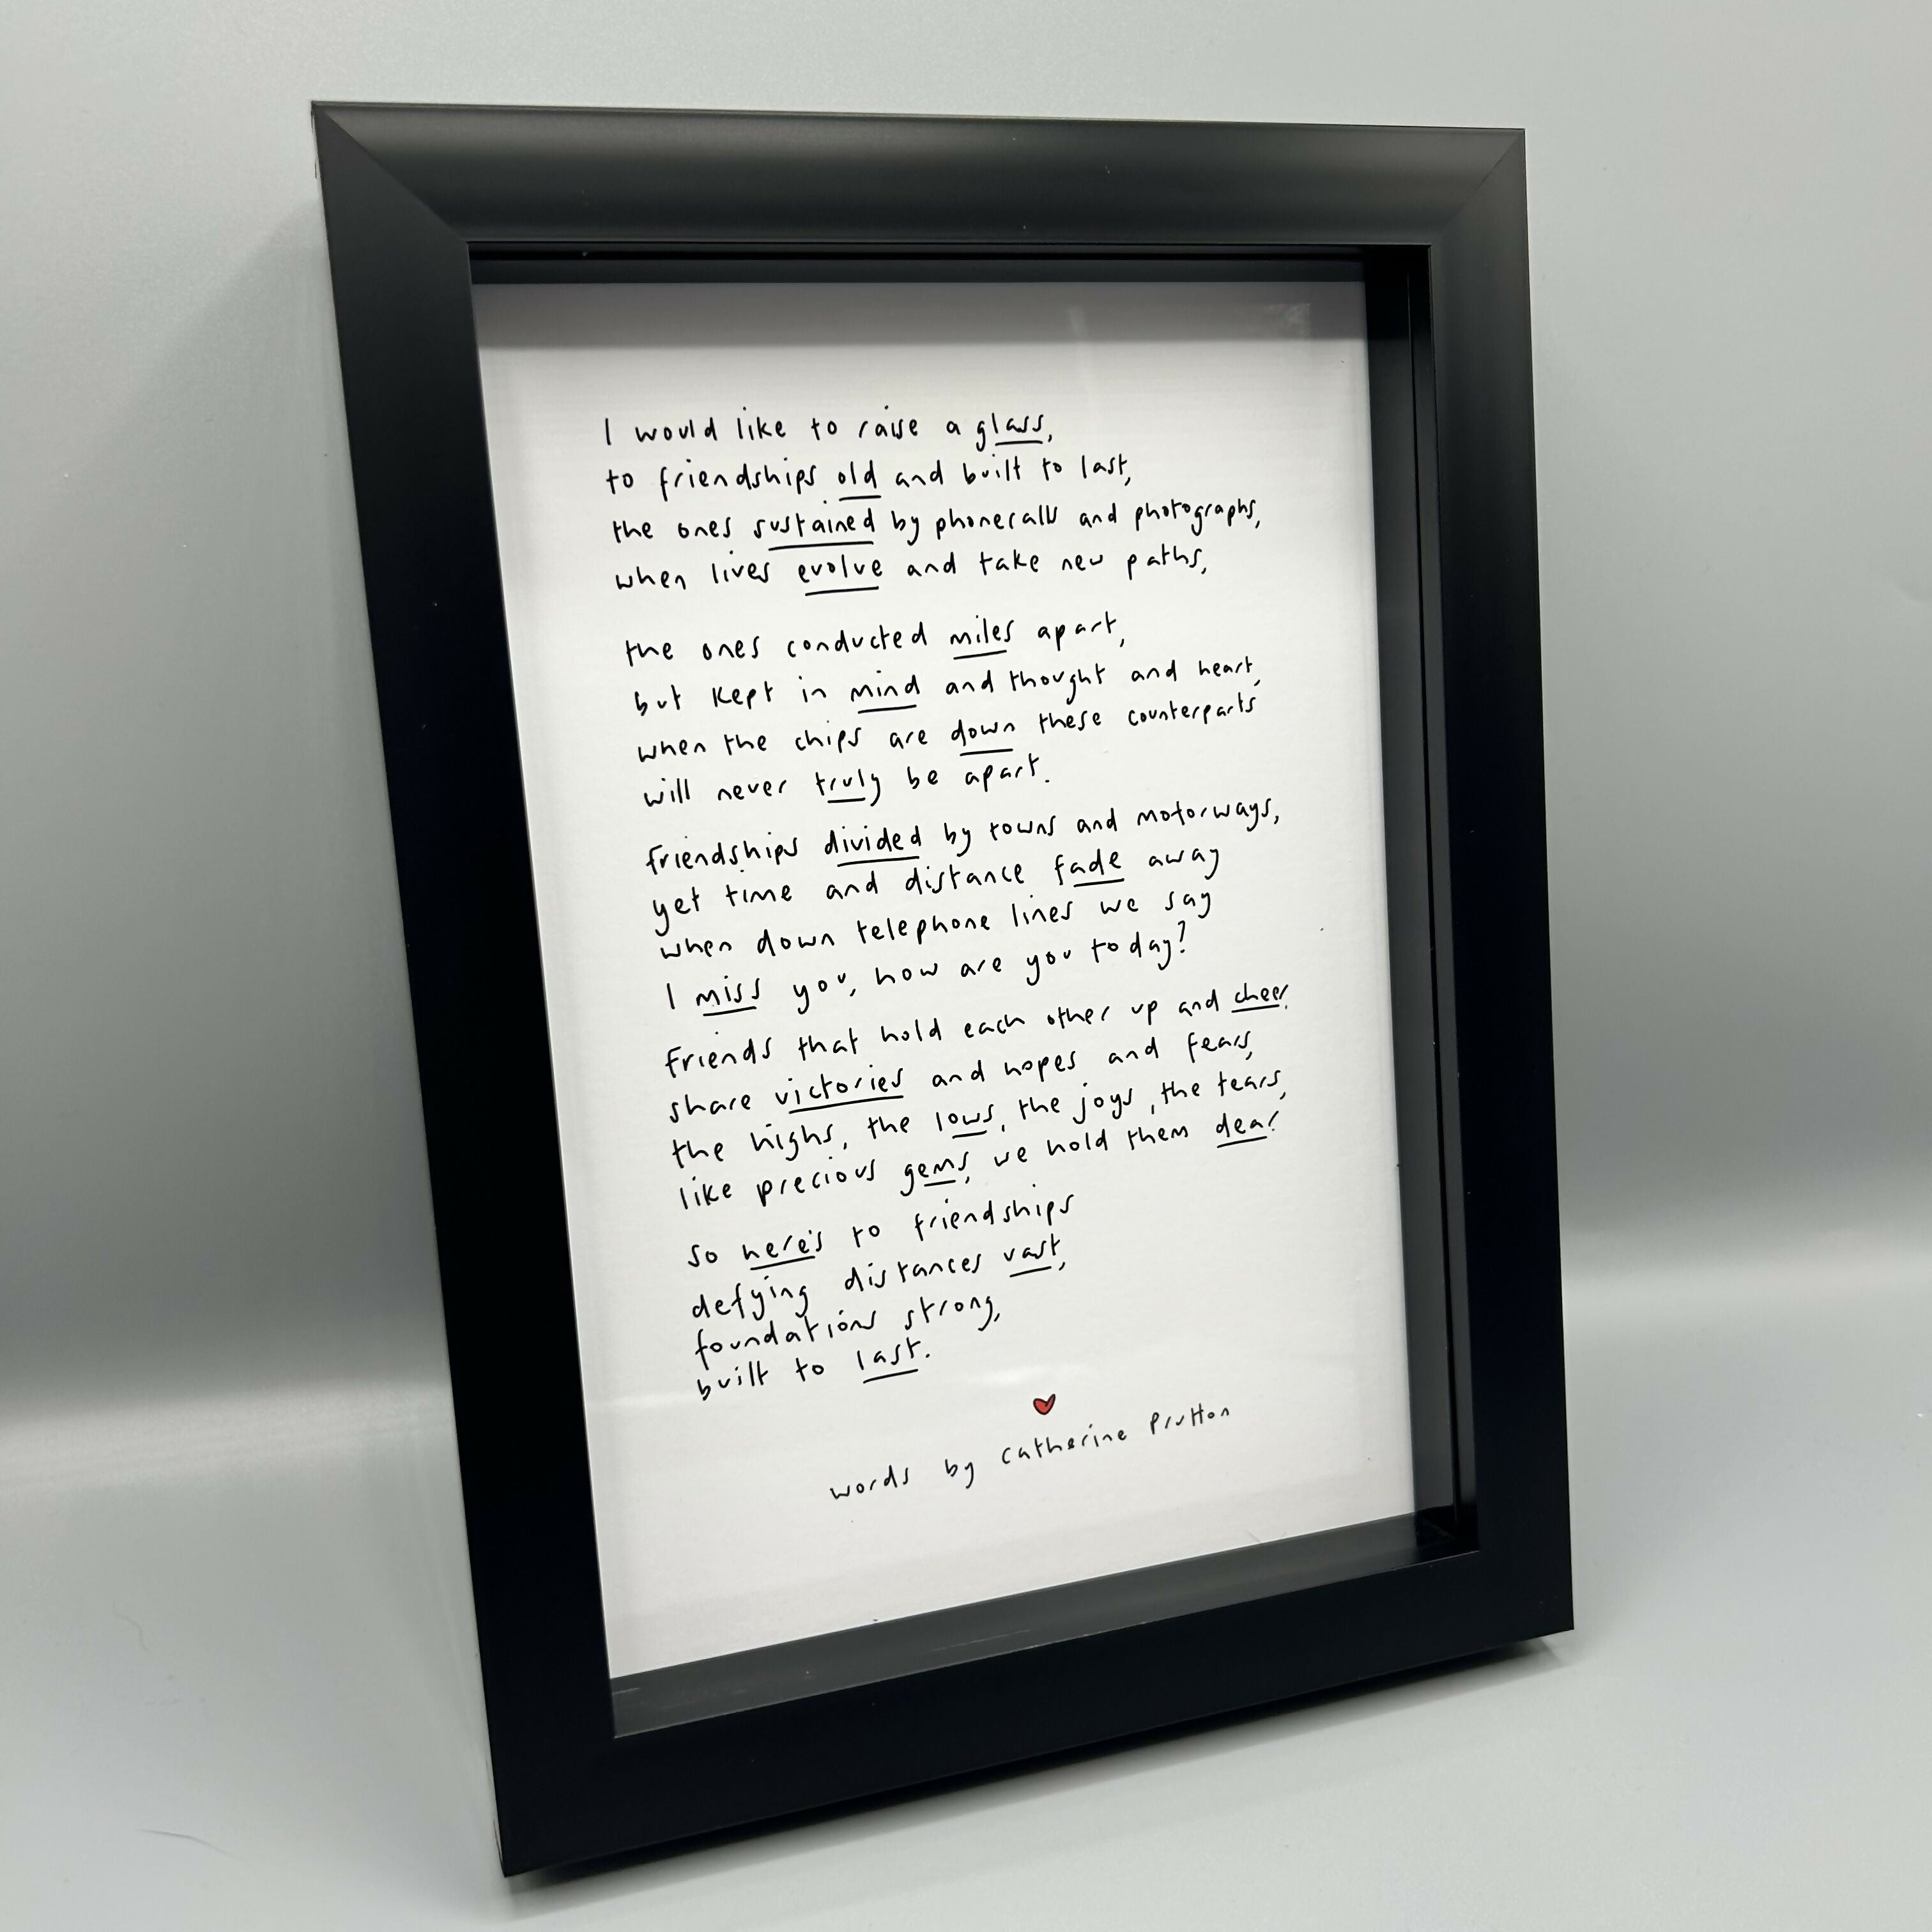 I would like to raise a glass,
to friendships old and built to last,
the ones sustained by phonecalls and photographs,
when lives evolve and take new paths,
the ones conducted miles apart,
but kept in mind and thought and heart,
when the chips are down these counterparts
will never truly be apart.
friendships divided by towns and motorways,
yet time and distance fade away
when down telephone lines we say
I miss you, how are you today?
Friends that hold each other up and cheer,
share victories and hopes and fears,
the highs, the lows, the joys, the tears,
like precious gems, we hold them dear.
So here's to friendships
defying distances vast,
foundations strong,
built to last.
words by Catherine Prutton